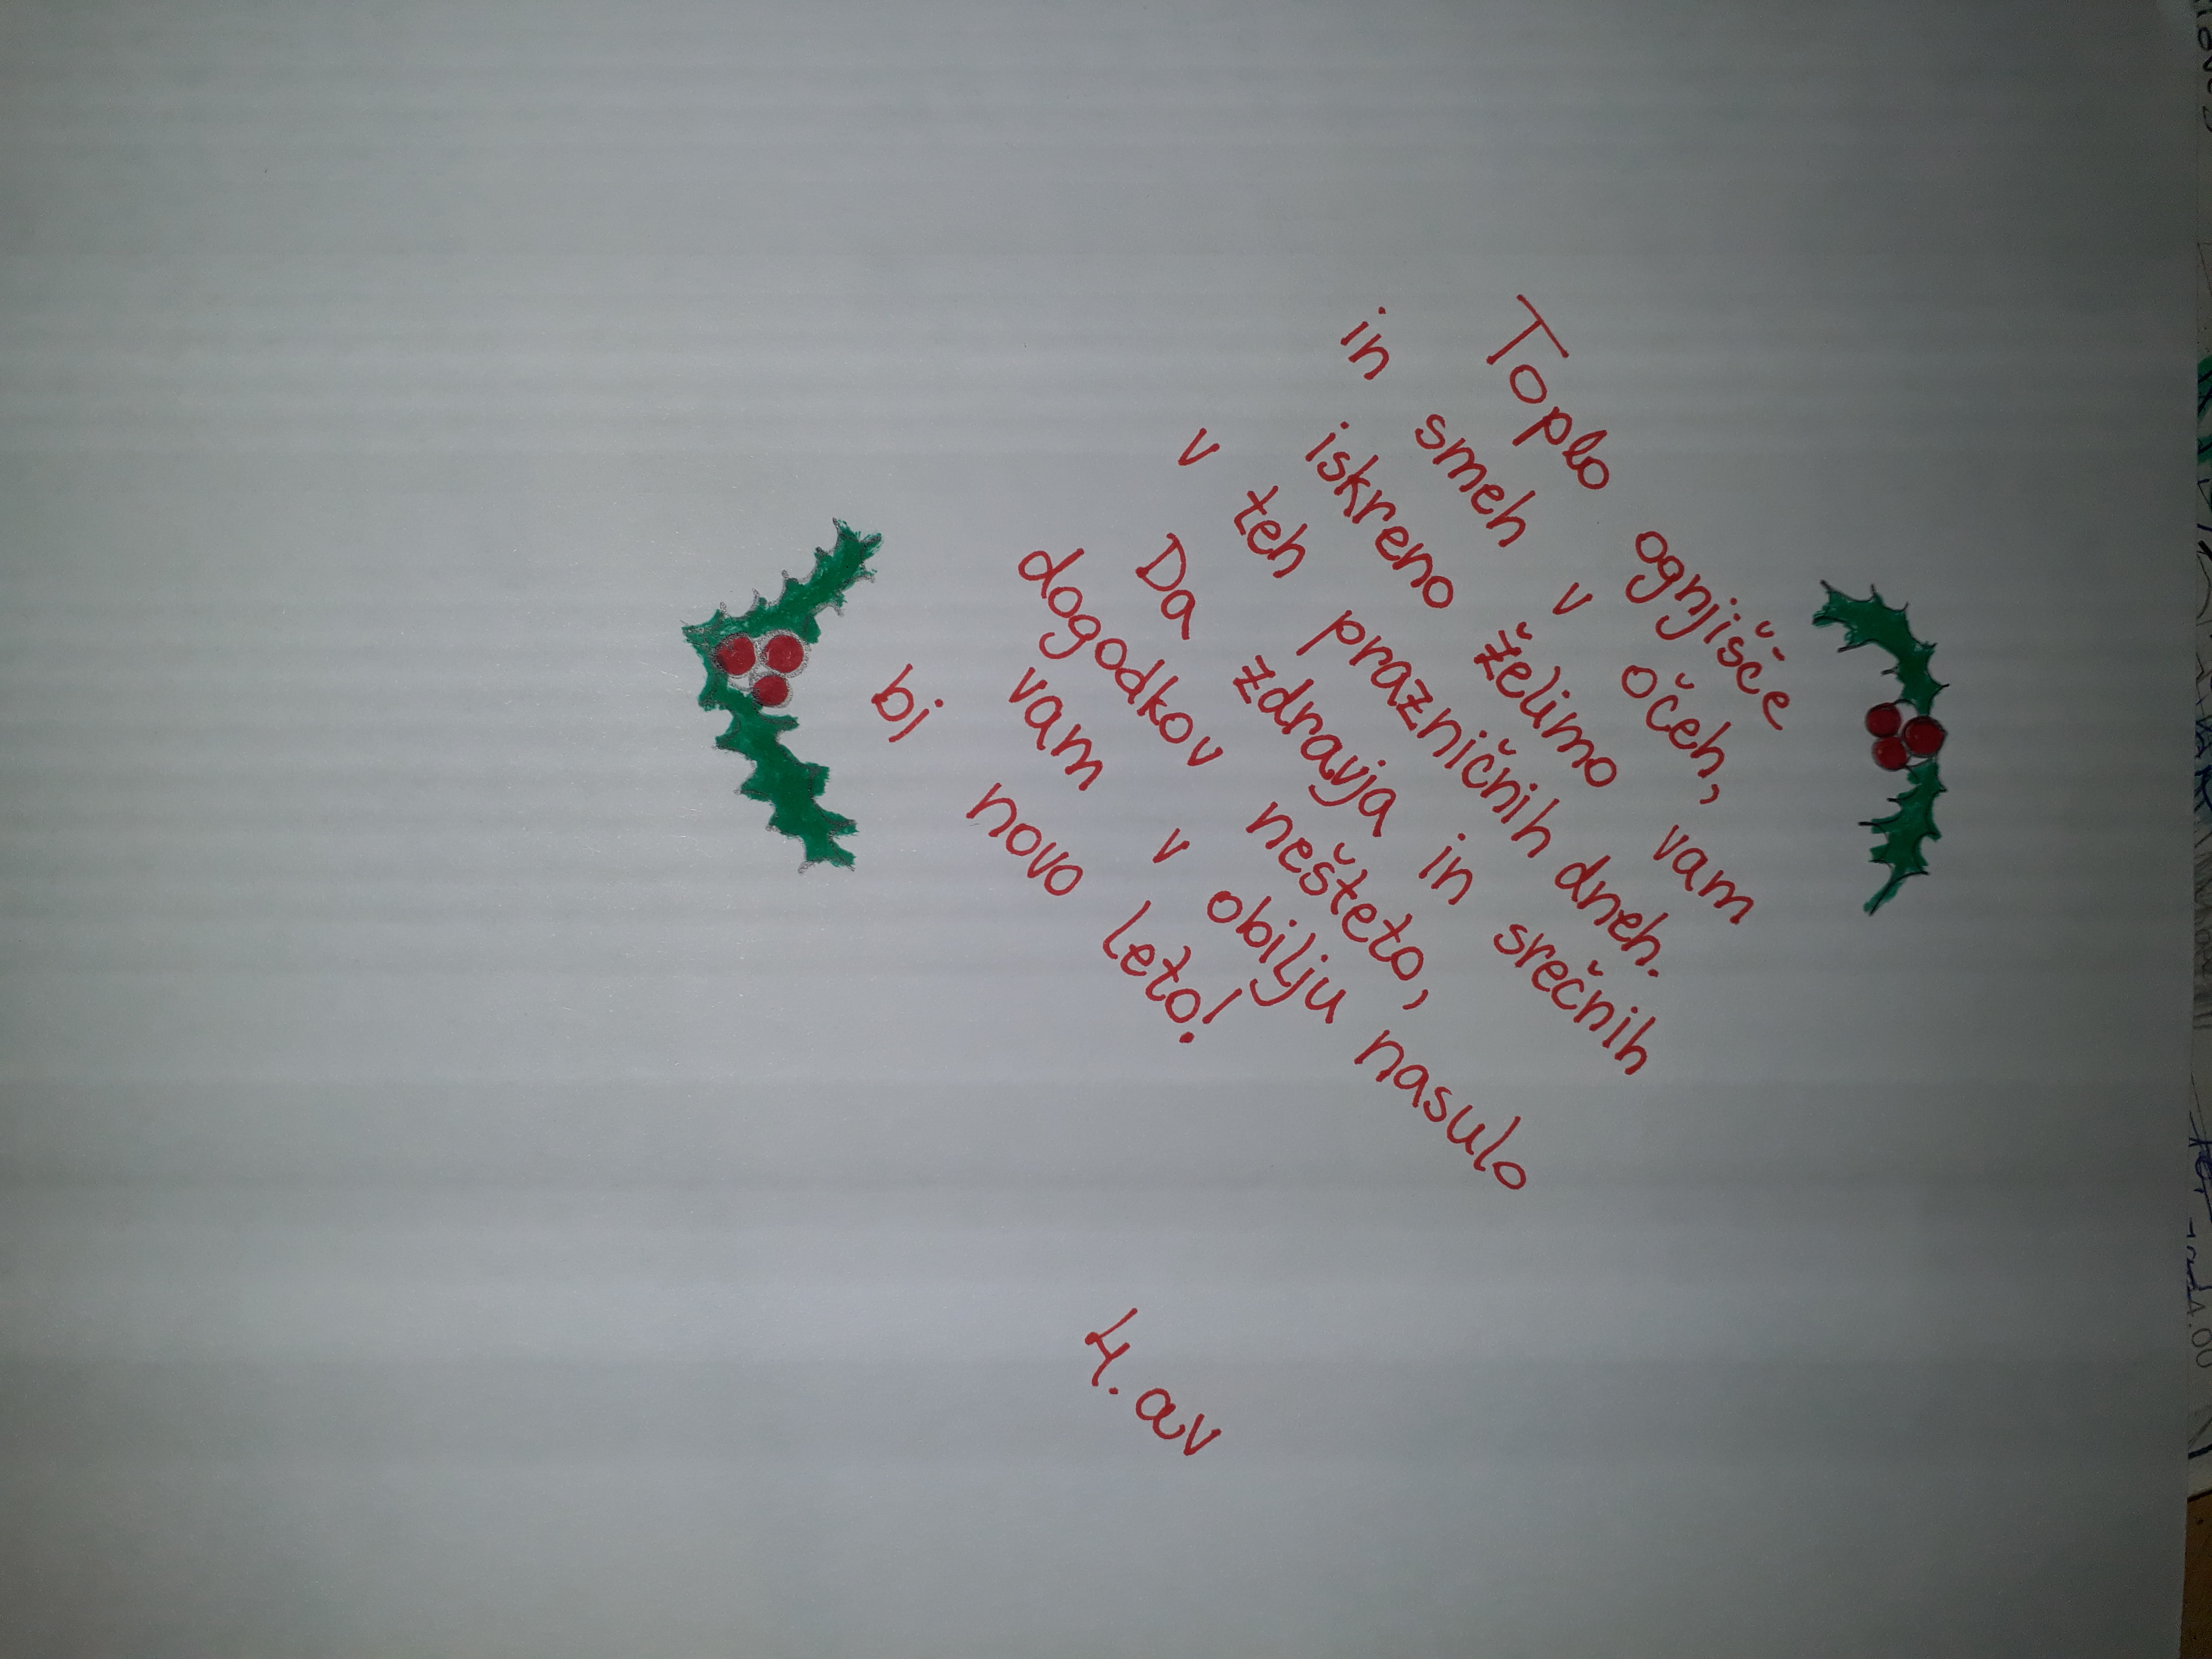 Toplo ognjišče
in smeh v očeh,
iskreno želimo vam
v teh prazničnih dneh.
Da zdravja in srečnih
dogodkov nešteto,
vam v obilju nasulo
bi novo leto!
4. av